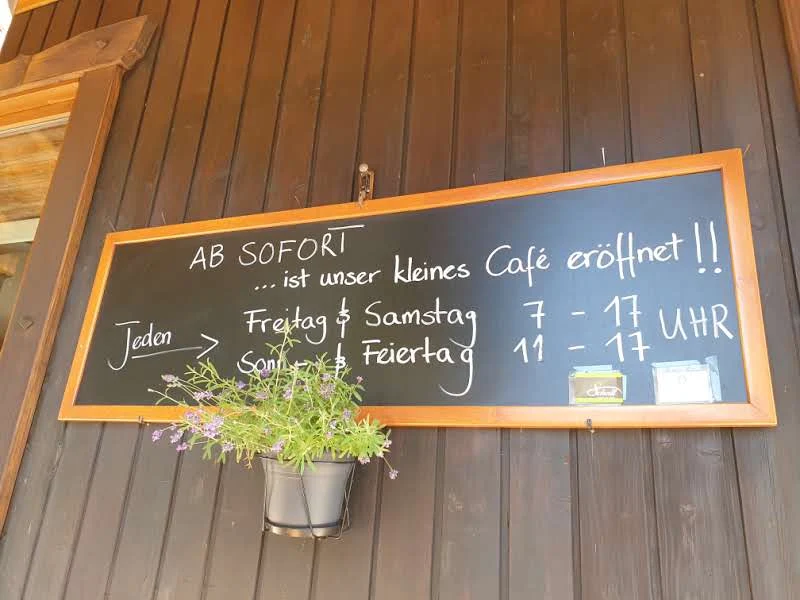 AB SOFORT
... ist unser kleines Café eröffnet!!
Jeden Freitag & Samstag 7 - 17 UHR
Sonn- & Feiertag 11 - 17